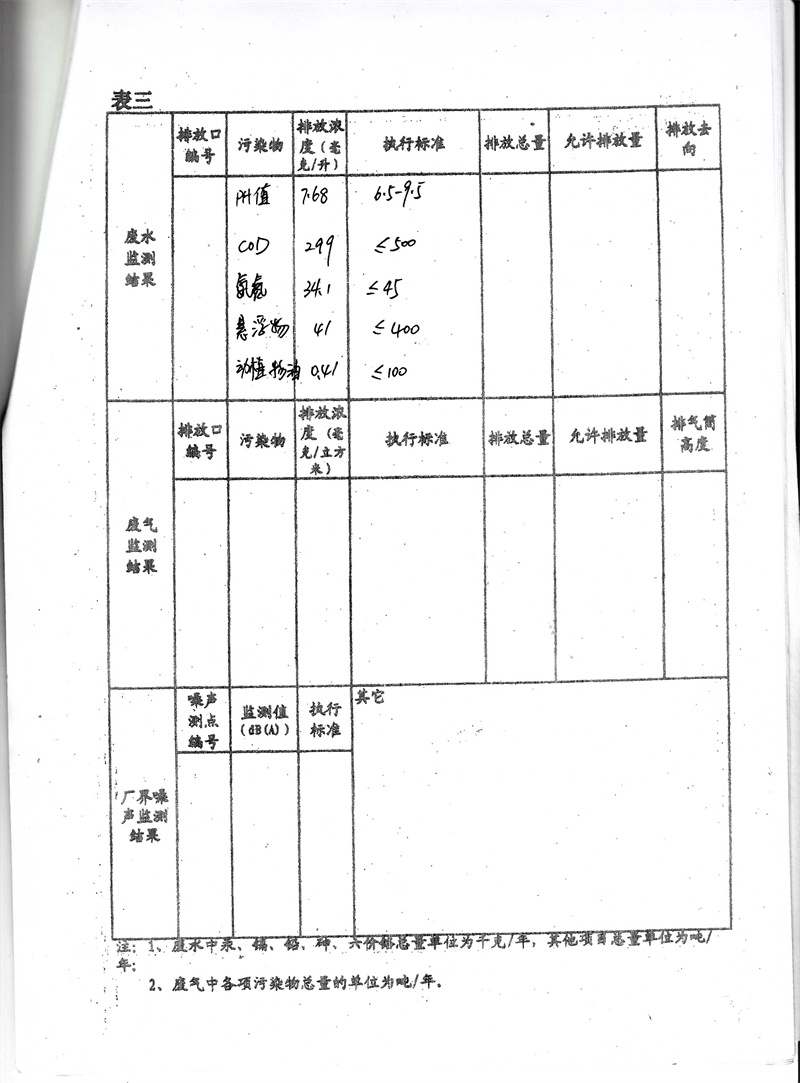 表三
排放口编号 污染物 排放浓度（毫克/升） 执行标准 排放总量 允许排放量 排放去向
废水监测结果
PH值 7.68 6.5-9.5
COD 299 ≤500
氨氮 34.1 ≤45
悬浮物 41 ≤400
动植物油 0.41 ≤100
排放口编号 污染物 排放浓度（毫克/立方米） 执行标准 排放总量 允许排放量 排气筒高度
废气监测结果
噪声测点编号 监测值（dB(A)） 执行标准 其它
厂界噪声监测结果
注：1、废水中汞、镉、铅、砷、六价铬总量单位为千克/年，其他项目总量单位为吨/
年；
2、废气中各项污染物总量的单位为吨/年。